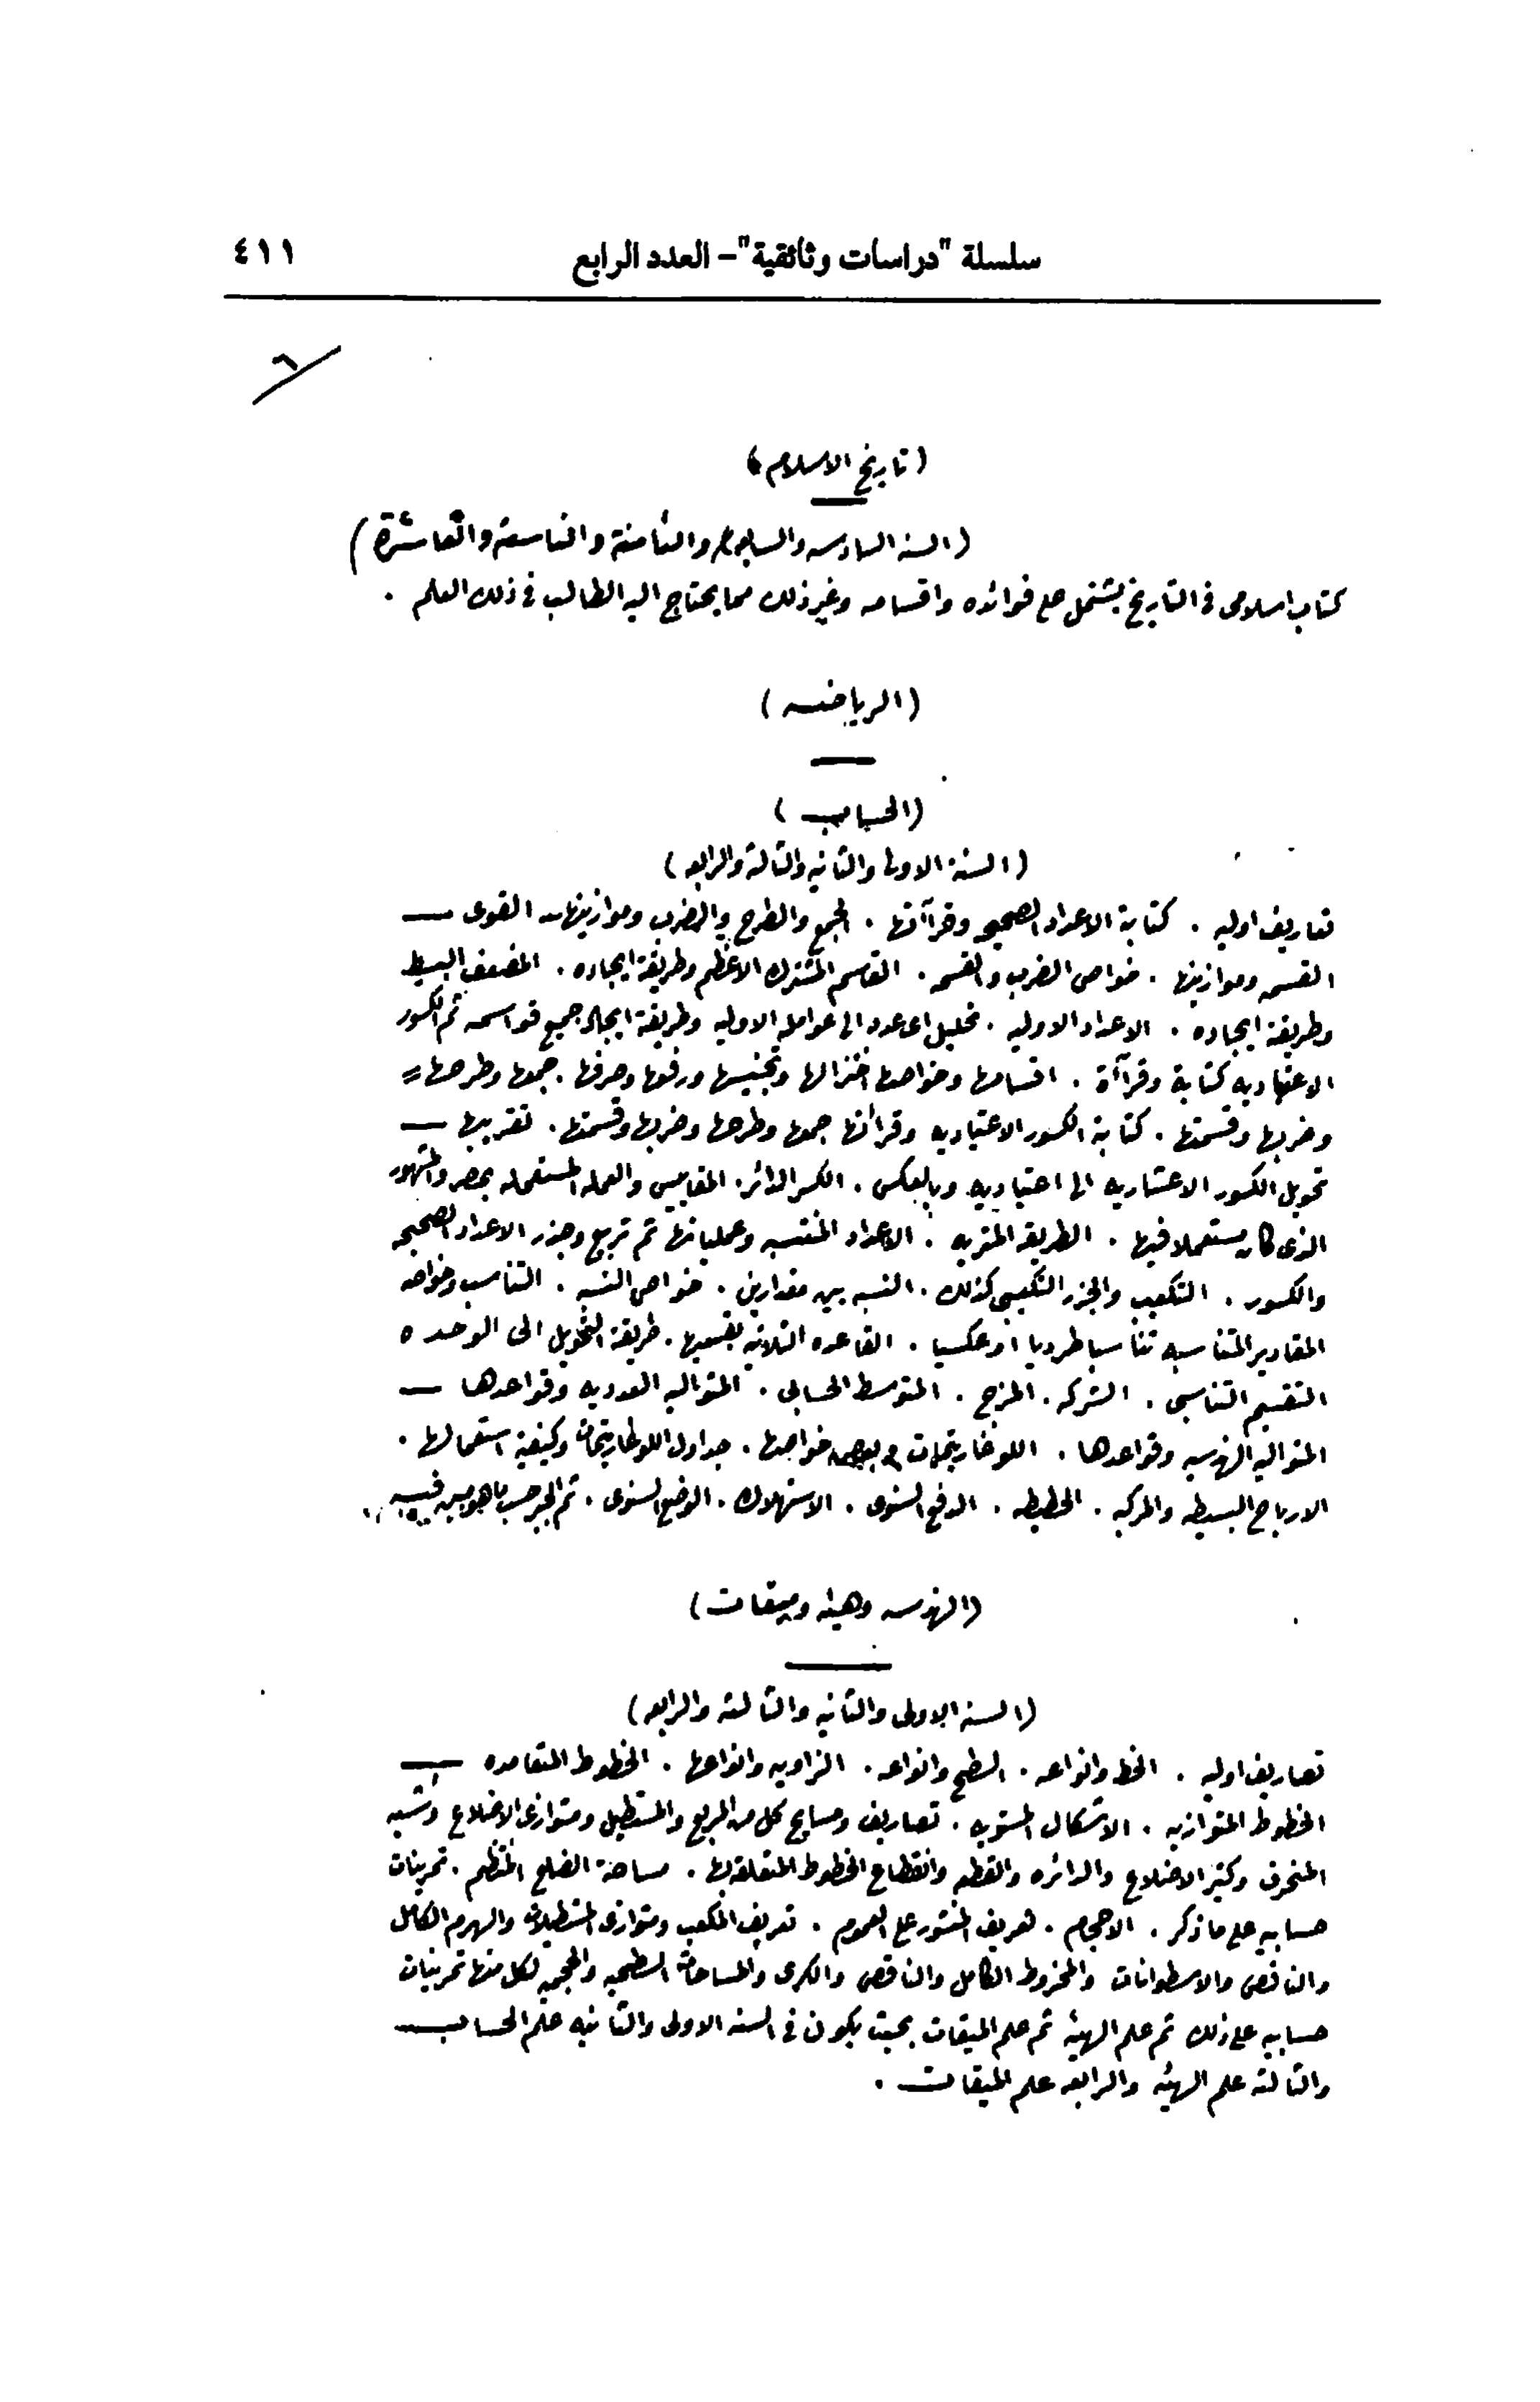 سلسلة "دراسات وثائقية" – العدد الرابع ٤١١
٦
(تاريخ الاسلام)
(السنه السادسه والسابعه والثامنة والتاسعة والعاشرة)
كتاب اسلامى فى التاريخ يشتمل على فوائده واقسامه وغير ذلك مما يحتاج اليه الطالب فى ذلك العلم .
(الرياضه)
(الحساب)
(السنة الاولى والثانيه والثالثة والرابعه)
تعاريف اوليه . كتابة الاعداد الصحيحه وقرآأتها . الجمع والطرح والضرب وموازينها القوى
القسمه وموازينها . خواص الضرب والقسمه . القاسم المشترك الاعظم وطريقة ايجاده . المضعف البسيط
وطريقة ايجاده . الاعداد الاوليه . تحليل اى عدد الى عوامله الاوليه وطريقة ايجاد جميع قواسمه ثم الكسور
الاعتياديه كتابة وقرآأة . اقسامها وخواصها اختزالها وتجنيسها ورفعها وصرفها . جمعها وطرحها
وضربها وقسمتها . كتابة الكسور الاعتياديه وقرائتها جمعها وطرحها وضربها وقسمتها . تقريبها
تحويل الكسور الاعشاريه الى اعتياديه وبالعكس . الكسر الدائر . المقاييس والعمله المستعمله بمصر والمشهور
الذى كان مستعملا فيها . الطريقه المتريه . الاعداد المنتسبه وعملياتها ثم تربيع وجذر الاعداد الصحيحه
والكسور . التكعيب والجذر التكعيبى كذلك . النسبه بين مقدارين . خواص النسبه . التناسب وخواصه
المقادير المتناسبه تناسبا طرديا او عكسيا . القاعده الثلاثيه بقسميها . طريقة التحويل الى الوحده
التقسيم التناسبى . الشركه . المزج . المتوسط الحسابى . المتواليه العدديه وقواعدها
المتواليه الهندسيه وقواعدها . اللوغاريتمات وبعض خواصها . جداول اللوغاريتمات وكيفية استعمالها .
الارباح البسيطه والمركبه . الحطيطه . الدفع السنوى . الاستهلاك . الوضع السنوى . ثم الجبر حسب ما هو مبين فيه
(الهندسه وهيئه وميقات)
(السنة الاولى والثانيه والثالثه والرابعه)
تعاريف اوليه . الخط وانواعه . السطح وانواعه . الزاويه وانواعها . الخطوط المتعامده
الخطوط المتوازيه . الاشكال المستويه . تعاريف ومسايح كل من المربع والمستطيل ومتوازى الاضلاع وشبه
المنحرف وكثير الاضلاع والدائره والقطع وانقطاع الخطوط المتعلقة بها . مساحة الضلع المنتظم . تمرينات
حسابيه على ما ذكر . الاحجام . تعريف المنشور على العموم . تعريف المكعب ومتوازى المستطيلات والهرم الكامل
والناقص والاسطوانات والمخروط الكامل والناقص والكرى والمساحات السطحيه والحجميه لكل منها تمرينات
حسابيه على ذلك ثم علم الهيئه ثم علم الميقات بحيث يكون فى السنه الاولى والثانيه علم الحساب
والثالثه علم الهيئه والرابعه علم الميقات .